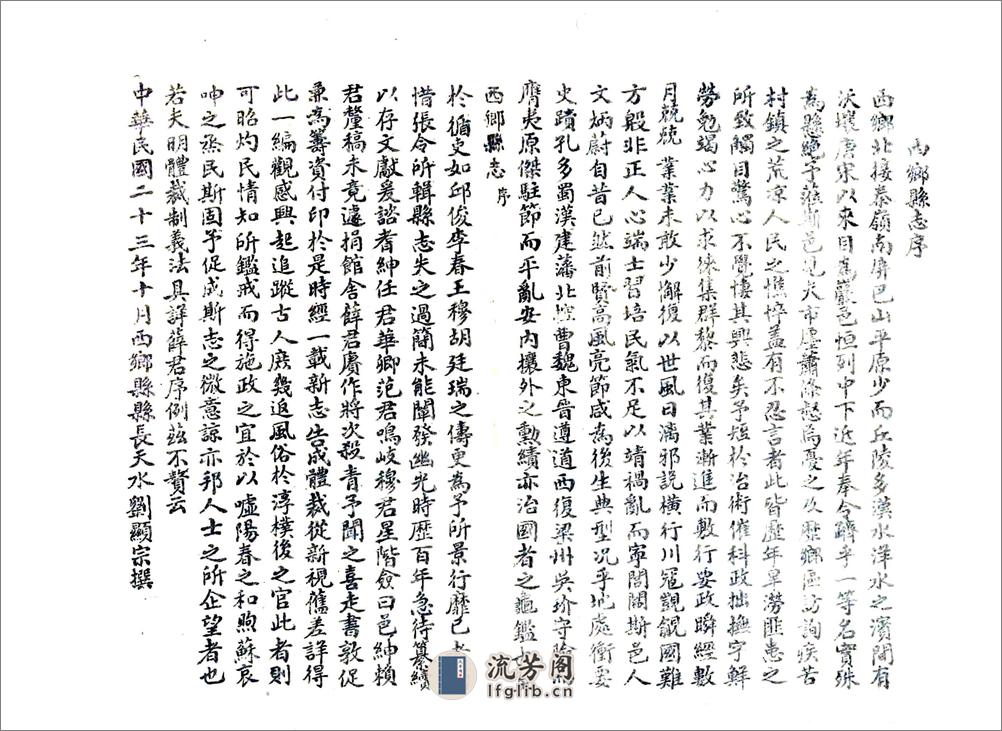 西鄉縣志序
西鄉北接秦嶺南屏巴山平原少而丘陵多漢水洋水之濱間有
沃壤唐宋以來目為嚴邑恒列中下近年奉令躋乎一等名實殊
為縣絕予蒞斯邑見夫市廛蕭條怒為憂之及歷鄉區訪詢疾苦
村鎮之荒凉人民之憔悴蓋有不忍言者此皆歷年旱澇匪患之
所致觸目驚心不覺悽其興悲矣予短於治術催科政拙撫字鮮
勞勉竭心力以求徠集群黎而復其業漸進而敷行要政瞬經數
月兢兢業業未敢少懈復以世風日漓邪說橫行川寇覬覦國難
方殷非正人心端士習培民氣不足以靖禍亂而寧閭閻斯邑人
文炳蔚自昔已然前賢高風亮節咸為後生典型况乎地處衝要
史蹟孔多蜀漢建藩北控曹魏東晉遵道西復梁州吳玠守險
膺夷原傑駐節而平亂安內攘外之勳績亦治國者之龜鑑
西鄉縣志 序
於循吏如邱俊李春王穆胡廷瑞之儔更為予所景行靡已者
惜張令所輯縣志失之過簡未能闡發幽光時歷百年急待纂續
以存文獻爰諮耆紳任君華卿范君鳴岐穆君星階僉曰邑紳賴
君釐稿未竟遽捐館舍薛君賡作將次殺青予聞之喜走書敦促
兼為籌資付印於是時經一載新志告成體裁從新視舊差詳得
此一編觀感興起追蹤古人庶幾返風俗於淳樸後之官此者則
可昭灼民情知所鑑戒而得施政之宜於以噓陽春之和煦蘇哀
呻之烝民斯固予促成斯志之微意諒亦邦人士之所企望者也
若夫明體裁制義法具詳薛君序例茲不贅云
中華民國二十三年十月西鄉縣縣長天水劉顯宗撰
流芳阁
lfglib.cn